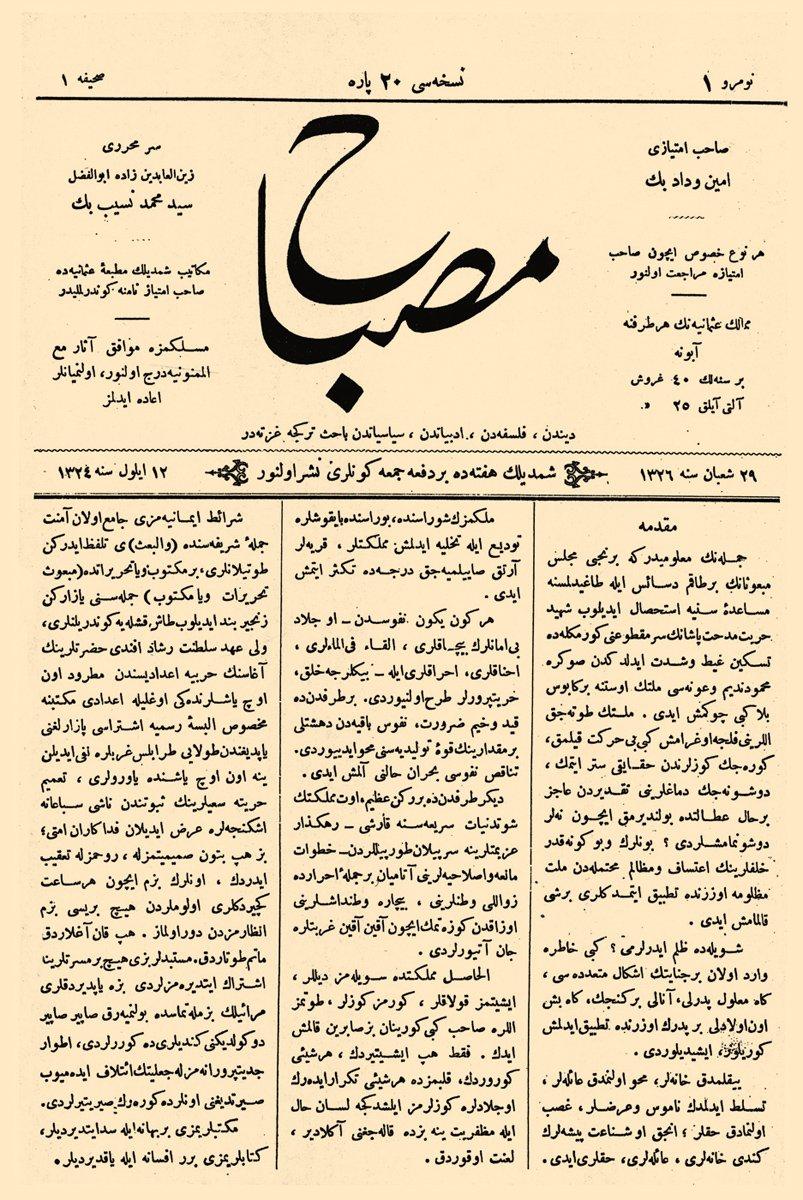 نومرو ١
نسخه‌سی ٢٠ پاره
صحیفه ١
صاحب امتیازی
امین وداد بك
هر نوع خصوص ایچون صاحب
امتیازه مراجعت اولنور
ممالك عثمانیه‌نك هر طرفنه
آبونه
بر سنه‌لك ٤٠ غروش
آلتی آیلق ٢٥ »
مصباح
سر محرری
زین‌العابدین زاده ابوالفضل
سید محمد نسیب بك
مكاتیب شمدیلك مطبعهٔ عثمانیه‌ده
صاحب امتیاز نامنه كوندرلملیدر
مسلكمزه موافق آثار مع
الممنونیه درج اولنور، اولنمیانلر
اعاده ایدلمز
دیندن ، فلسفه‌دن ، ادبیاتدن ، سیاسیاتدن باحث تركجه غزته‌در
٢٩ شعبان سنه ١٣٢٦
شمدیلك هفته‌ده بر دفعه جمعه كونلری نشر اولنور
١٢ ایلول سنه ١٣٢٤
مقدمه
جمله‌نك معلومیدركه برنجی مجلس
مبعوثانك برطاقم دسائس ایله طاغیدلمسنه
مساعدهٔ سنیه استحصال ایدیلوب شهید
حریت مدحت پاشانك سر مقطوعنی كورمكله‌ده
تسكین غیظ وشدت ایدلدكدن صوكره
محمود ندیم وعونه‌سی ملتك اوستنه بركابوس
بلا كبی چوكمش ایدی . ملتك طوته‌جق
اللرینی فلجه اوغرامش كبی بی حركت قیلمق،
كوره‌جك كوزلردن حقایقی ستر ایتمك،
دوشونه‌جك دماغلرینی تقدیردن عاجز
برحال عطالتده بولندیرمق ایچون نه‌لر
دوشونمامشلردی ؟ بونلرك وبو كونه‌قدر
خلفلرینك اعتساف ومظالم محتمله‌دن ملت
مظلومه اوزرنده تطبیق ایتمدكلری برشی
قالمامش ایدی .
شویله‌ده ظلم ایدرلرمی ؟ كبی خاطره
وارد اولان برجنایتك اشكال متعدده‌سی ،
كاه معلول پدرلی، آنالی بركنجك، كاه بش
اون اولادلی بر پدرك اوزرنده تطبیق ایدلمش
كوریلور، ایشیدیلوردی .
ییقلمدق خانه‌لر، محو اولنمدق عائله‌لر ،
تسلط ایدلمدك ناموس وعرضلر، غصب
اولنمادق حقلر ؛ انجق او شناعت پیشه‌لرك
كندی خانه‌لری ، عائله‌لری، حقلری ایدی.
ملكمزك شوراسنده، بوراسنده بایقوشلره
تودیع ایله تخلیه ایدلمش مملكتلر ، قریه‌لر
آرتق صاییلمیه‌جق درجه‌ده تكثر ایتمش
ایدی .
هر كون یكون نفوسدن ـ او جلاد
بی‌امانلرك بیچاقلری ، القاء فی‌الماءلری ،
احناقلری، احراقلری ایله ـ بیكلرجه خلق،
حریتپرورلر طرح اولنیوردی. برطرفدن‌ده
قید وخیم ضرورت، نفوس باقیه‌دن دهشتلی
بر مقدارینك قوهٔ تولیدیه‌سنی محو ایدییوردی.
تناقص نفوسی بحران حالنی آلمش ایدی.
دیكر طرفدن‌ده بر ركن عظیم، اوت مملكتك
شو تدنیات سریعه‌سنه قارشی ـ رهكذار
عزیمتلرینه سریلان طوربیللردن ـ خطوات
مانعه واصلاحیه‌لرینی آتامیان برجمله احرارده
زواللی وطنلرینی ، بیچاره وطنداشلرینی
اوزاقدن كوزه‌تمك ایچون آقین آقین غربتلره
جان آتیورلردی .
الحاصل مملكتده سویله‌مز دیللر ،
ایشیتمز قولاقلر ، كورمز كوزلر ، طوتمز
اللره صاحب كبی كورینان بزصابرین قالمش
ایدك . فقط هپ ایشیتیردك ، هرشیئی
كوروردك، قلبمزده هرشیئی تكرار ایده‌رك
اوجلادلره كوزلرمز ایلشدكجه لسان حال
ایله مظفریت ینه بزده قاله‌جغنی آكلادیر ،
لعنت اوقوردق.
شرائط ایمانیه‌مزی جامع اولان آمنت
جملهٔ شریفه‌سنده (والبعث)ی تلفظ ایدركن
طوتیلانلری، بر مكتوب ویا تحریراتده (مبعوث
تحریرات ویا مكتوب) جمله‌سنی یازاركن
زنجیر بند ایدیلوب طاش قشله‌یه كوندریلنلری،
ولی عهد سلطنت رشاد افندی حضرتلرینك
آغاسنك حربیه اعدادیسندن مطرود اون
اوچ یاشلرنده‌كی اوغلیله اعدادی مكتبنه
مخصوص البسهٔ رسمیه اشتراسی پازارلغنی
یاپدیغندن طولایی طرابلس غربلره نفی ایدیلن
ینه اون اوچ یاشنده یاورولری ، تعمیم
حریته سعیلرینك ثبوتندن ناشی سباعانه
اشكنجه‌لره عرض ایدیلان فداكاران امتی؛
بز هپ بتون صمیمیتمزله ، روحمزله تعقیب
ایدردك ، اونلرك بزم ایچون هرساعت
كچیردكلری اولوملردن هیچ بریسی بزم
انظارمزدن دور اولماز . هپ قان آغلاردق
ماتم طوتاردق. مستبدلر بزی هیچ بر مسرتلرینا
اشتراك ایتدیره‌مزلردی بزه یاپدیردقلری
مرائیلك بزمله تماسده بولنمیه‌رق صاپیر صاپیر
دوكولدیكنی كندیلری‌ده كوررلردی، اطوار
جدیتپرورانه‌مزله جعلیتك ائتلاف ایده‌میوب
صیرتدیغنی اونلرده كوره‌رك صیریتیرلردی.
مكتبلریمزی بر بهانه ایله سدایتدیردیلر،
كتابلریمزی برر افسانه ایله یاقدیردیلر .